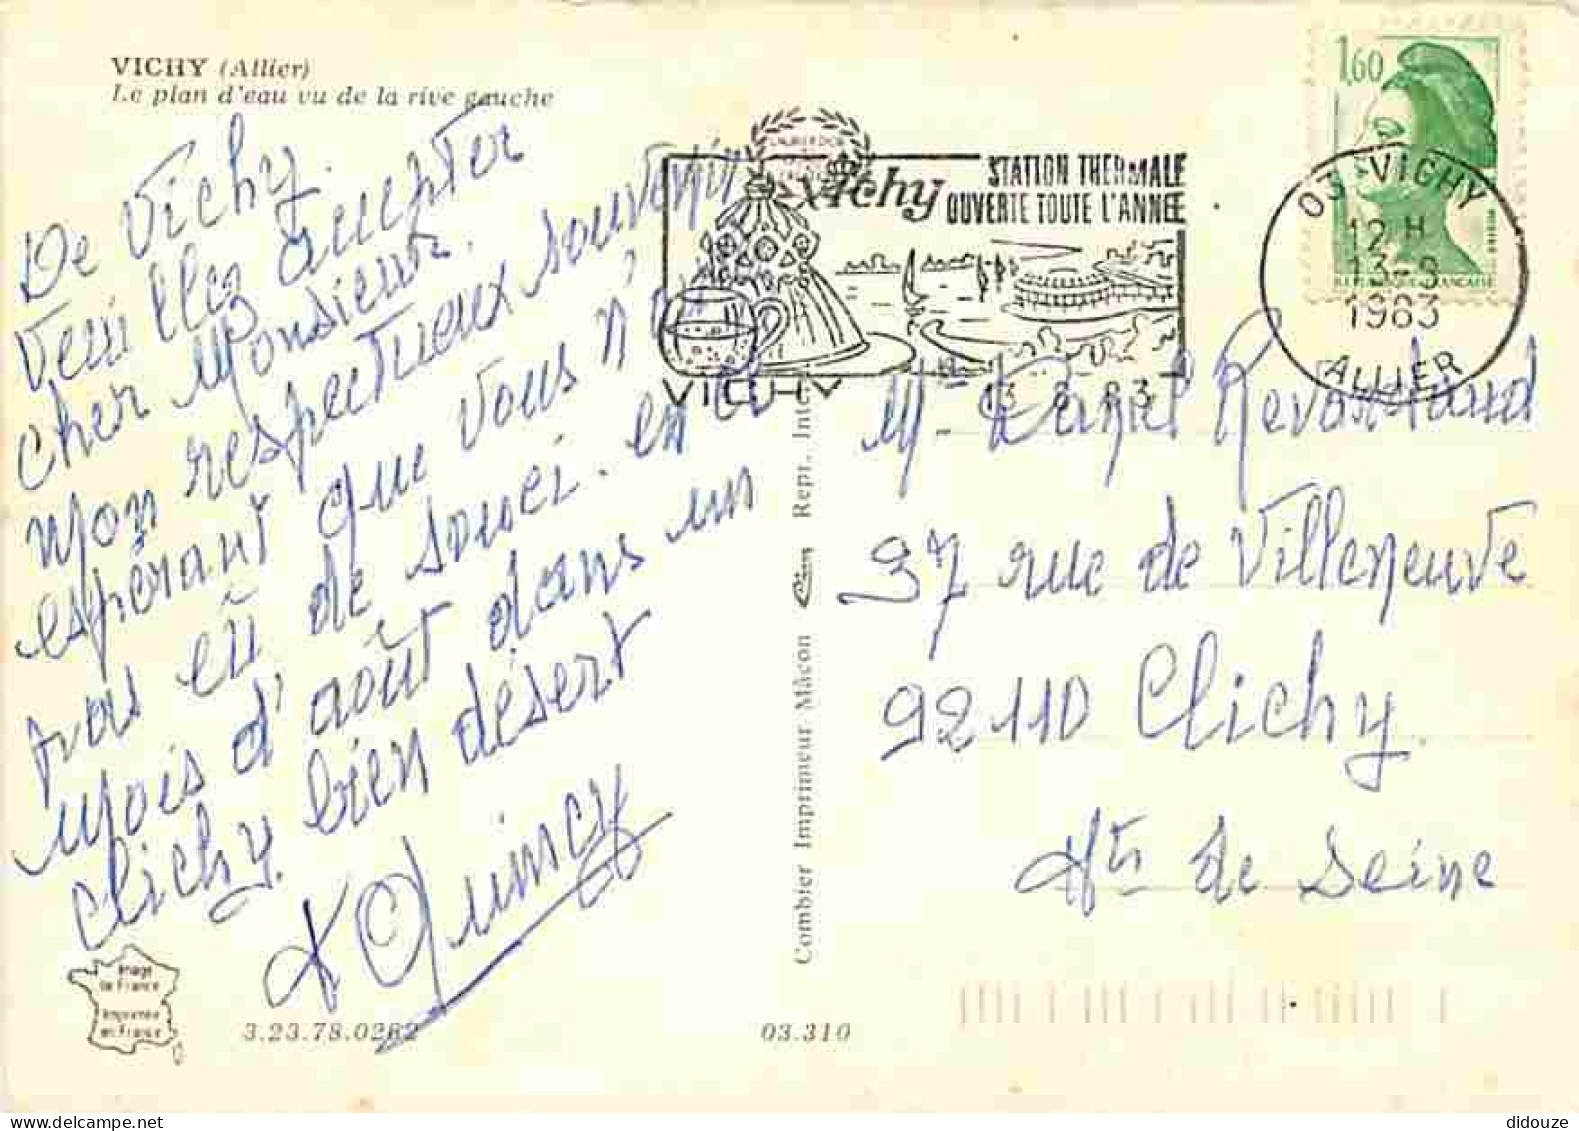 VICHY (Allier)
Le plan d'eau vu de la rive gauche
De Vichy.
Veuillez accepter
cher Monsieur.
Mon respectueux souvenir
espérant que vous n'
pas eû de souci. en ce
mois d'août dans un
Clichy. bien désert
Quincy
Image
de France
Imprimée
en France
3.23.78.0262
03.310
Combier Imprimeur Mâcon
Repr. Int
Vichy
STATION THERMALE
OUVERTE TOUTE L'ANNEE
VICHY
1,60
03 VICHY
12 H
1983
ALLIER
M. Daniel
37 rue de Villeneuve
92110 Clichy.
Hts de Seine
didouze